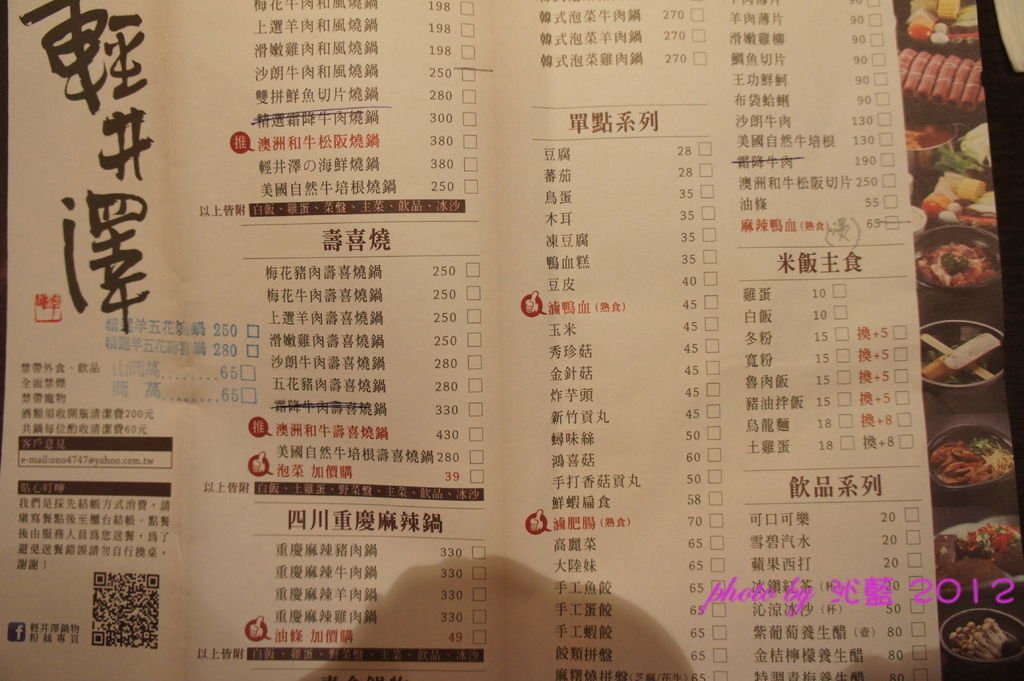 輕井澤
精選羊五花風燒鍋 250 □
精選羊五花壽喜鍋 280 □
山茼萵........65 □
茼 萵........65 □
禁帶外食、飲品
全面禁煙
禁帶寵物
酒類須收開瓶清潔費200元
共鍋每位酌收清潔費60元
客戶意見
e-mail:ono4747@yahoo.com.tw
貼心叮嚀
我們是採先結帳方式消費，請
填寫餐點後至櫃台結帳，點餐
後由服務人員為您送餐，為了
避免送餐錯誤請勿自行換桌，
謝謝！
輕井澤鍋物
粉絲專頁
梅花牛肉和風燒鍋 198 □
上選羊肉和風燒鍋 198 □
滑嫩雞肉和風燒鍋 198 □
沙朗牛肉和風燒鍋 250 □
雙拼鮮魚切片燒鍋 280 □
精選霜降牛肉燒鍋 300 □
推 澳洲和牛松阪燒鍋 380 □
輕井澤の海鮮燒鍋 380 □
美國自然牛培根燒鍋 250 □
以上皆附 白飯、雞蛋、菜盤、主菜、飲品、冰沙
壽喜燒
梅花豬肉壽喜燒鍋 250 □
梅花牛肉壽喜燒鍋 250 □
上選羊肉壽喜燒鍋 250 □
滑嫩雞肉壽喜燒鍋 250 □
沙朗牛肉壽喜燒鍋 280 □
五花豬肉壽喜燒鍋 280 □
霜降牛肉壽喜燒鍋 330 □
推 澳洲和牛壽喜燒鍋 430 □
美國自然牛培根壽喜燒鍋 280 □
泡菜 加價購 39 □
以上皆附 白飯、土雞蛋、野菜盤、主菜、飲品、冰沙
四川重慶麻辣鍋
重慶麻辣豬肉鍋 330 □
重慶麻辣牛肉鍋 330 □
重慶麻辣羊肉鍋 330 □
重慶麻辣雞肉鍋 330 □
油條 加價購 49 □
以上皆附 白飯、雞蛋、野菜盤、主菜、飲品、冰沙
韓式泡菜牛肉鍋 270 □
韓式泡菜羊肉鍋 270 □
韓式泡菜雞肉鍋 270 □
單點系列
豆腐 28 □
蕃茄 28 □
鳥蛋 35 □
木耳 35 □
凍豆腐 35 □
鴨血糕 35 □
豆皮 40 □
滷鴨血(熟食) 45 □
玉米 45 □
秀珍菇 45 □
金針菇 45 □
炸芋頭 45 □
新竹貢丸 45 □
蟳味絲 50 □
鴻喜菇 60 □
手打香菇貢丸 50 □
鮮蝦扁食 58 □
滷肥腸(熟食) 70 □
高麗菜 65 □
大陸妹 65 □
手工魚餃 65 □
手工蛋餃 65 □
手工蝦餃 65 □
餃類拼盤 65 □
麻糬燒拼盤(芝麻/花生) 65 □
牛肉薄片 90 □
羊肉薄片 90 □
滑嫩雞柳 90 □
鯛魚切片 90 □
王功鮮蚵 90 □
布袋蛤蜊 90 □
沙朗牛肉 130 □
美國自然牛培根 130 □
霜降牛肉 190 □
澳洲和牛松阪切片 250 □
油條 55 □
麻辣鴨血(熟食) 65 □
米飯主食
雞蛋 10 □
白飯 10 □
冬粉 15 □ 換+5 □
寬粉 15 □ 換+5 □
魯肉飯 15 □ 換+5 □
豬油拌飯 15 □ 換+5 □
烏龍麵 18 □ 換+8 □
土雞蛋 18 □ 換+8 □
飲品系列
可口可樂 20 □
雪碧汽水 20 □
蘋果西打 20 □
冰鎮紅茶(杯) 20 □
沁涼冰沙(杯) 50 □
紫葡萄養生醋(壺) 80 □
金桔檸檬養生醋 80 □
特調青梅養生醋 80 □
photo by 沁藍 2012